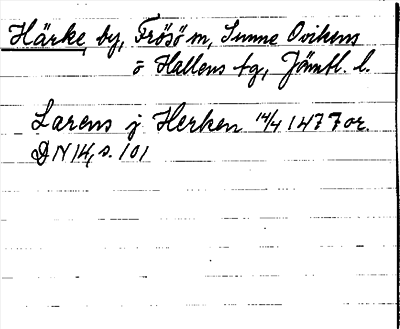 Härke, by, Frösö m, Sunne Ovikens
o Hallens tg, Jämtl. l.
Larens j Herken 14/4 1477 or.
DN 14, s. 101